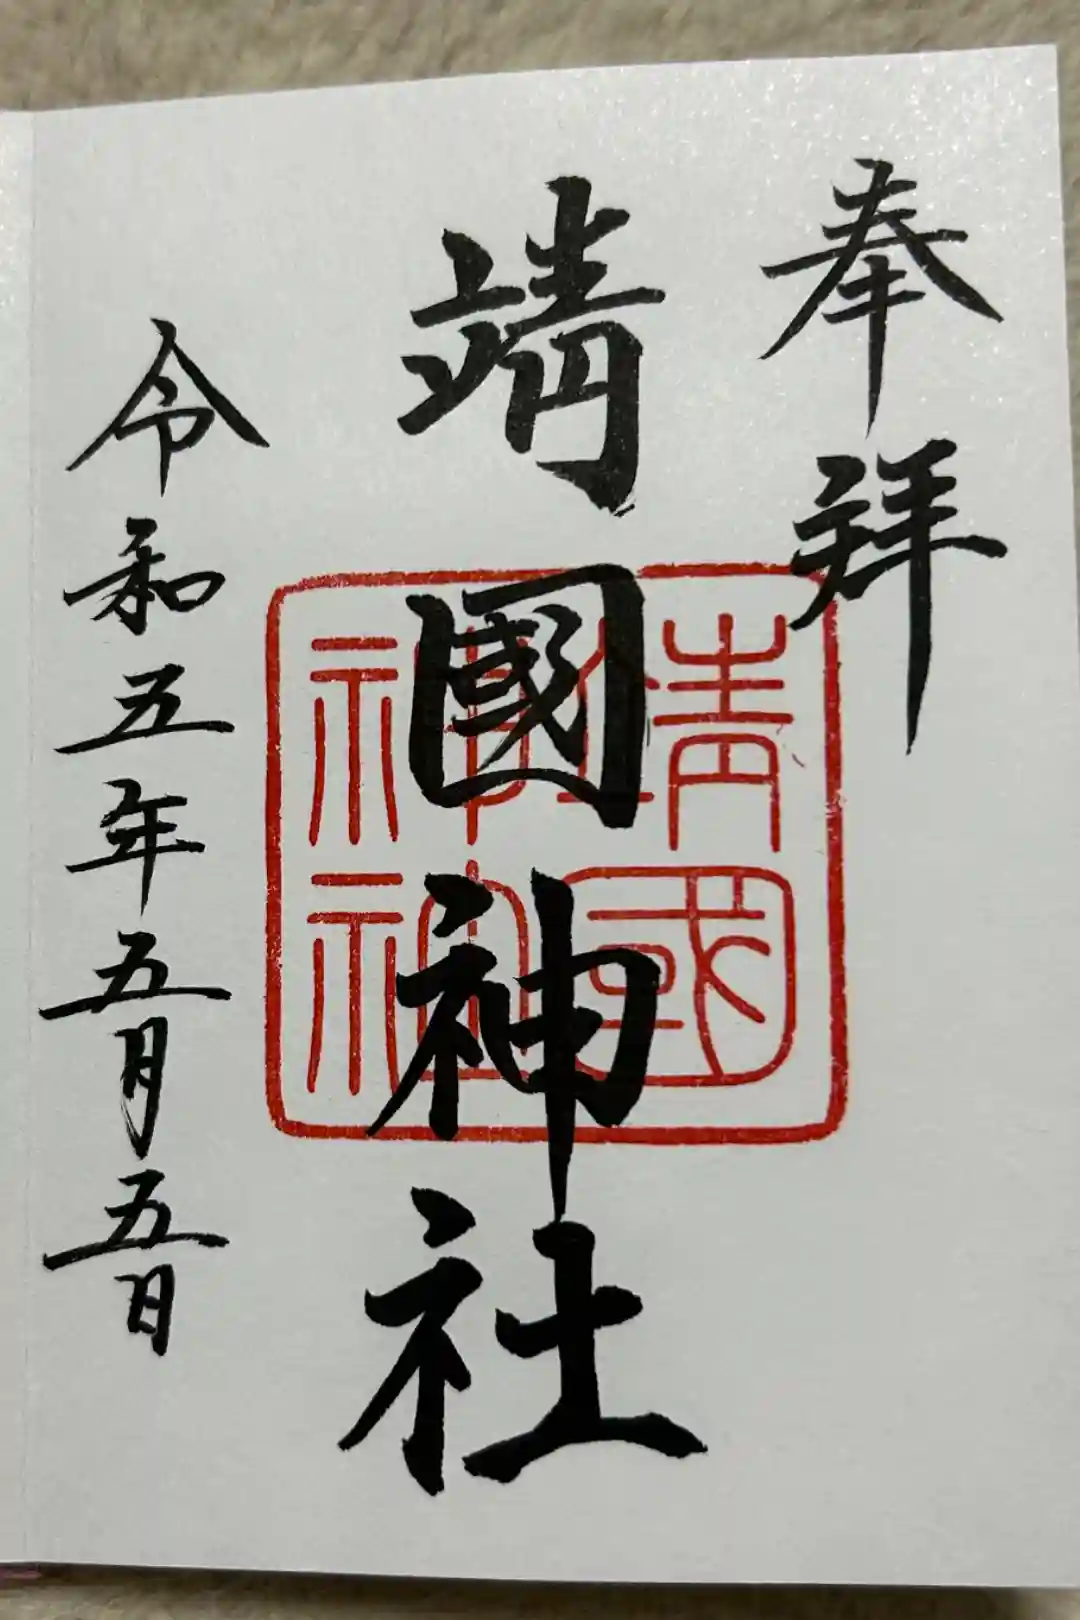 奉拜
靖國神社
靖國
神社
令和五年五月五日